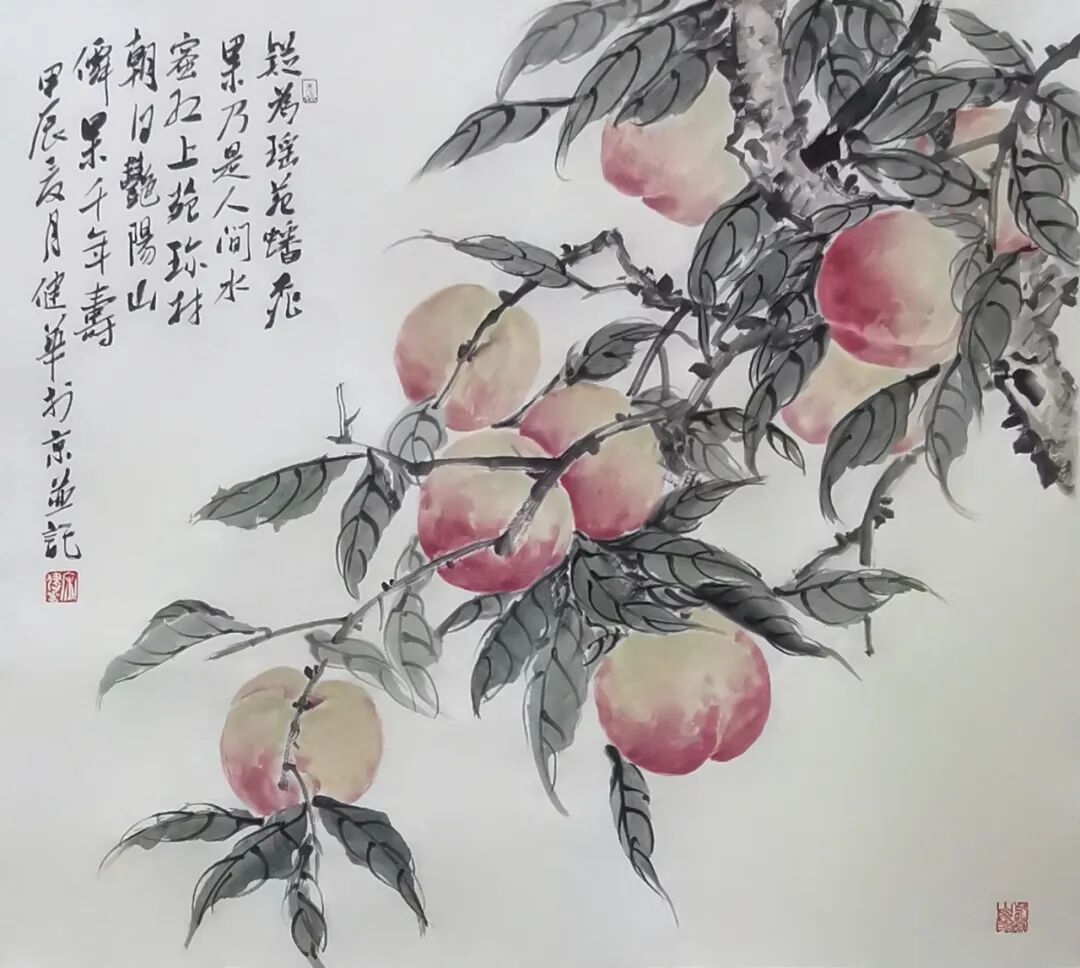 疑為瑤苑蟠桃
果乃是人間水
蜜紅上苑珎林
朝日艷陽山
僊果千年壽
甲辰夏月健華於京並記